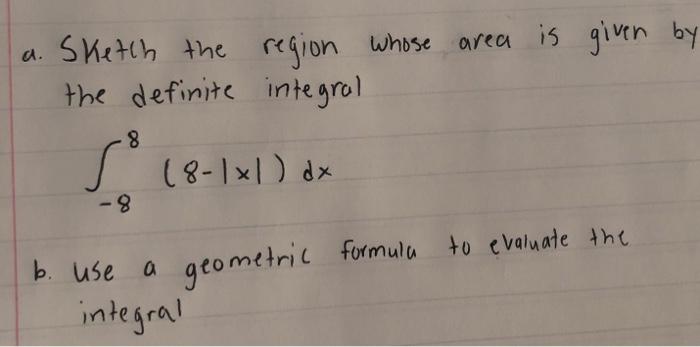 a. Sketch the region whose area is given by
the definite integral
∫_{-8}^{8} (8-|x|) dx
b. use a geometric formula to evaluate the
integral